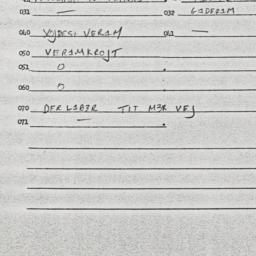 031 — 032 GADERAM
040 VOJDESI VERAM 041 —
050 VERAMKROJT
051 O
060 O
070 DER LABER TIT MER VEJ
071 —